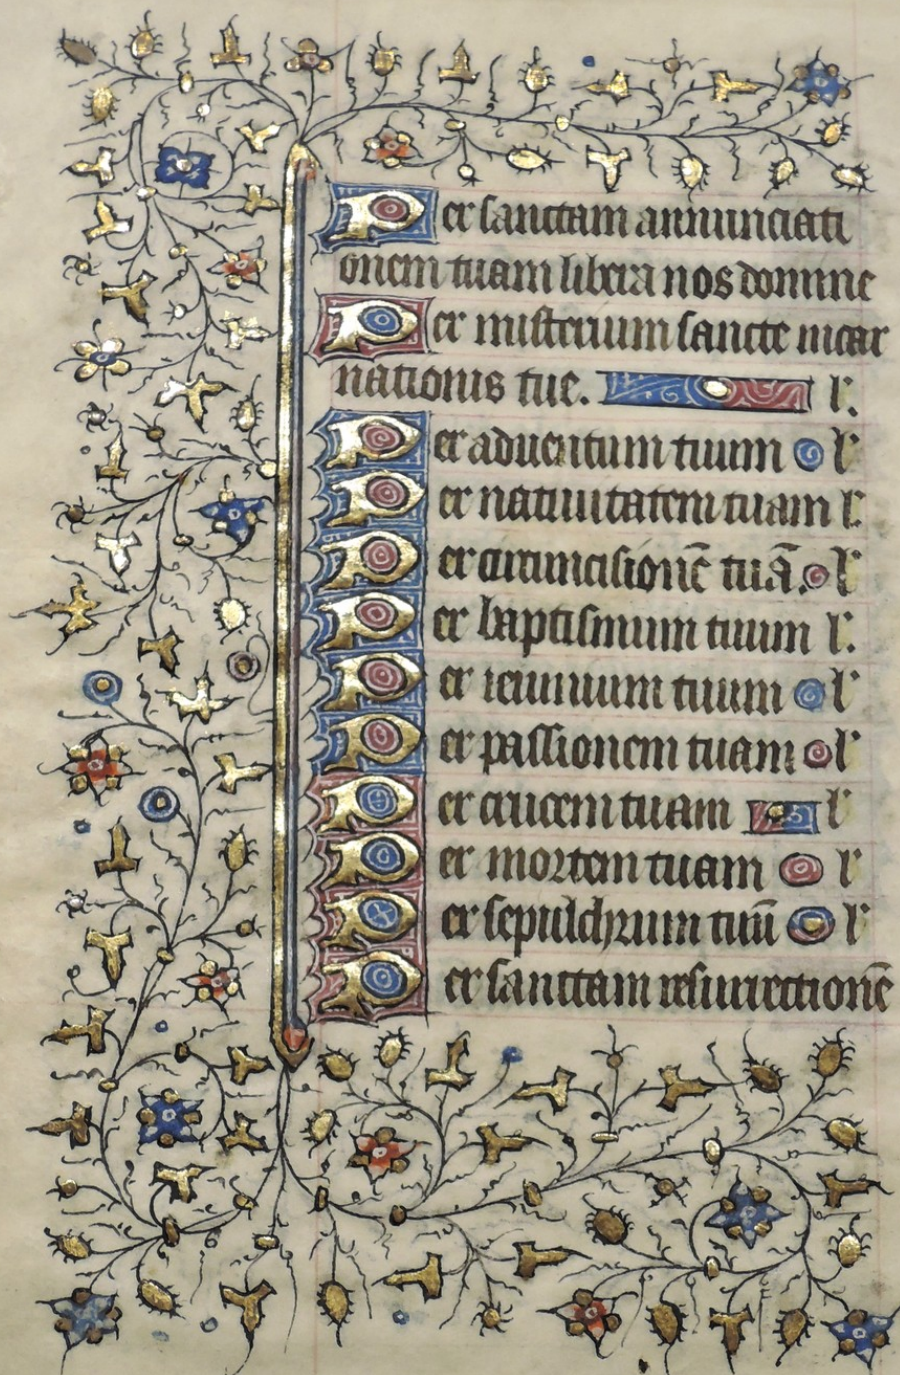 Per sanctam annunciati
onem tuam libera nos domine
Per misterium sancte incar
nationis tue. l'.
Per aduentum tuum l'
Per natiuitatem tuam l'.
Per circuncisionē tuā. l'
Per baptismum tuum l'.
Per ieiunium tuum l'
Per passionem tuam l'
Per crucem tuam l'
Per mortem tuam l'
Per sepulchrum tuū l'
Per sanctam resurrectionē